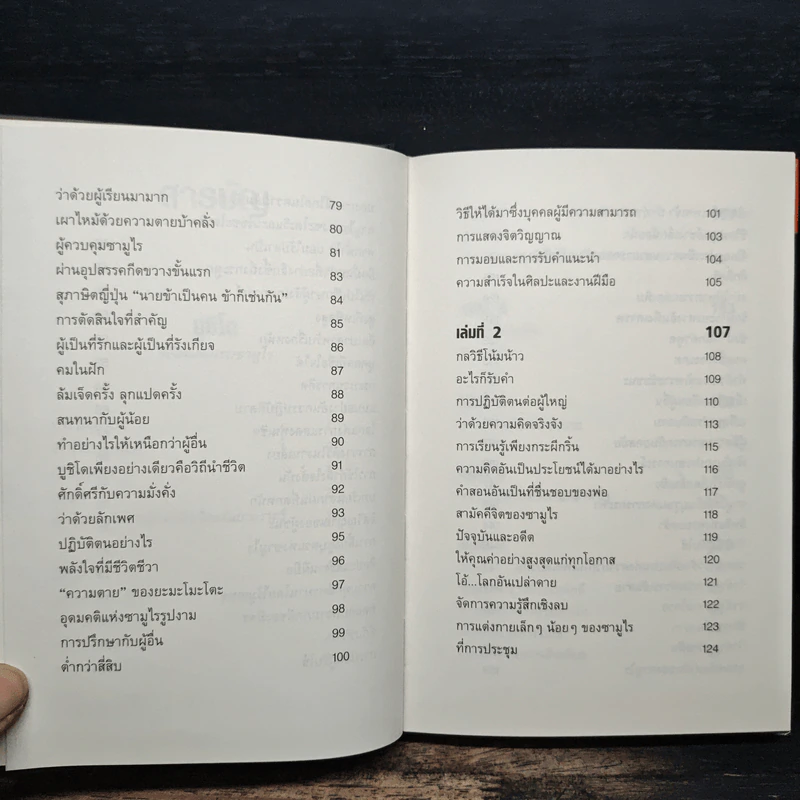 ว่าด้วยผู้เรียนมามาก 79
เผาไหม้ด้วยความตายบ้าคลั่ง 80
ผู้ควบคุมซามูไร 81
ผ่านอุปสรรคกีดขวางขั้นแรก 83
สุภาษิตญี่ปุ่น “นายข้าเป็นคน ข้าก็เช่นกัน” 84
การตัดสินใจที่สำคัญ 85
ผู้เป็นที่รักและผู้เป็นที่รังเกียจ 86
คมในฝัก 87
ล้มเจ็ดครั้ง ลุกแปดครั้ง 88
สนทนากับผู้น้อย 89
ทำอย่างไรให้เหนือกว่าผู้อื่น 90
บูชิโดเพียงอย่างเดียวคือวิถีนำชีวิต 91
ศักดิ์ศรีกับความมั่งคั่ง 92
ว่าด้วยลักเพศ 93
ปฏิบัติตนอย่างไร 95
พลังใจที่มีชีวิตชีวา 96
“ความตาย” ของยะมะโมะโตะ 97
อุดมคติแห่งซามูไรรูปงาม 98
การปรึกษากับผู้อื่น 99
ต่ำกว่าสี่สิบ 100
วิธีให้ได้มาซึ่งบุคคลผู้มีความสามารถ 101
การแสดงจิตวิญญาณ 103
การมอบและการรับคำแนะนำ 104
ความสำเร็จในศิลปะและงานฝีมือ 105
เล่มที่ 2 107
กลวิธีโน้มน้าว 108
อะไรก็รับคำ 109
การปฏิบัติตนต่อผู้ใหญ่ 110
ว่าด้วยความคิดจริงจัง 113
การเรียนรู้เพียงกระผีกริ้น 115
ความคิดอันเป็นประโยชน์ได้มาอย่างไร 116
คำสอนอันเป็นที่ชื่นชอบของพ่อ 117
สามัคคีจิตของซามูไร 118
ปัจจุบันและอดีต 119
ให้คุณค่าอย่างสูงสุดแก่ทุกโอกาส 120
โอ้...โลกอันเปล่าดาย 121
จัดการความรู้สึกเชิงลบ 122
การแต่งกายเล็กๆ น้อยๆ ของซามูไร 123
ที่การประชุม 124